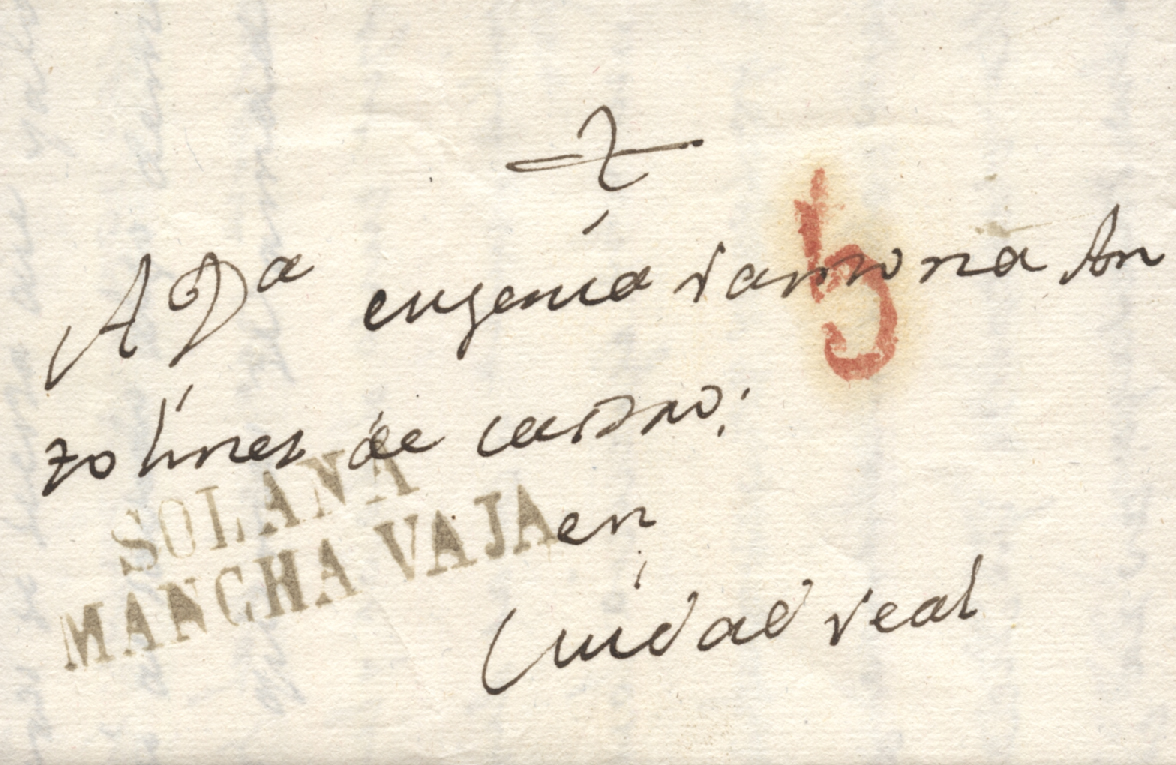 A Dª eugenia ramona An
tolinez de castro;
SOLANA
MANCHA VAJA
en
Ciudad real
5